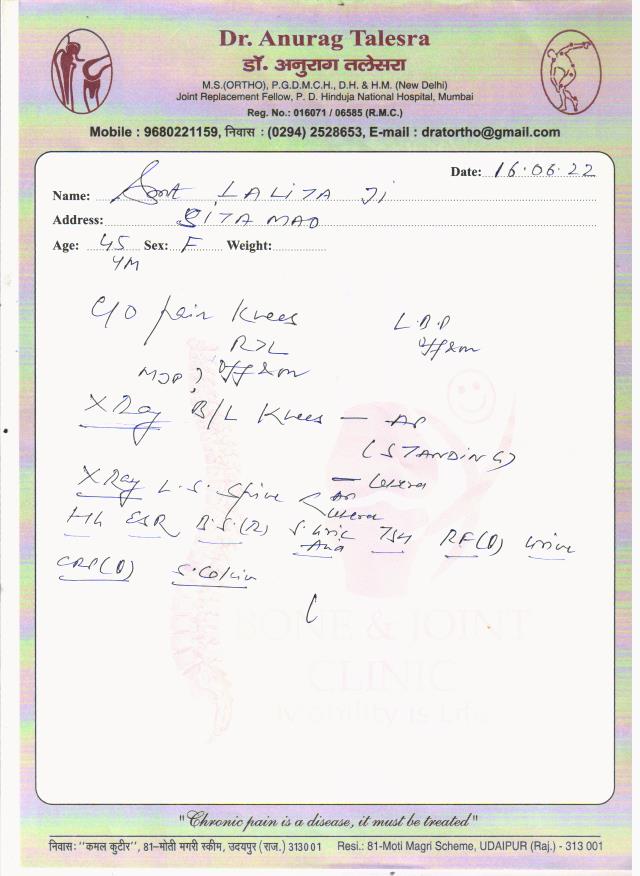 Dr. Anurag Talesra
डॉ. अनुराग तलेसरा
M.S.(ORTHO), P.G.D.M.C.H., D.H. & H.M. (New Delhi)
Joint Replacement Fellow, P. D. Hinduja National Hospital, Mumbai
Reg. No.: 016071 / 06585 (R.M.C.)
Mobile : 9680221159, निवास : (0294) 2528653, E-mail : dratortho@gmail.com
Date: 16.06.22
Name: Smt LALITA JI
Address: SITA MAO
Age: 45 Sex: F Weight:
4M
C/O pain Knees L.B.P
R>L
X Ray B/L Knees — AP
(STANDING)
X Ray L.S. Spine < AP
Hb ESR B.S.(R) S. Uric TSH RF(Q) Urine
CRP(Q) S. Calcium
BONE & JOINT
CLINIC
Mobility is Life
"Chronic pain is a disease, it must be treated"
निवास: "कमल कुटीर", 81-मोती मगरी स्कीम, उदयपुर (राज.) 313001 Resi.: 81-Moti Magri Scheme, UDAIPUR (Raj.) - 313 001